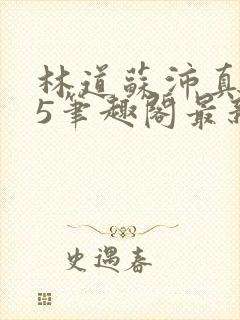 林道蘇沛真
5筆趣閣最新
史遇春